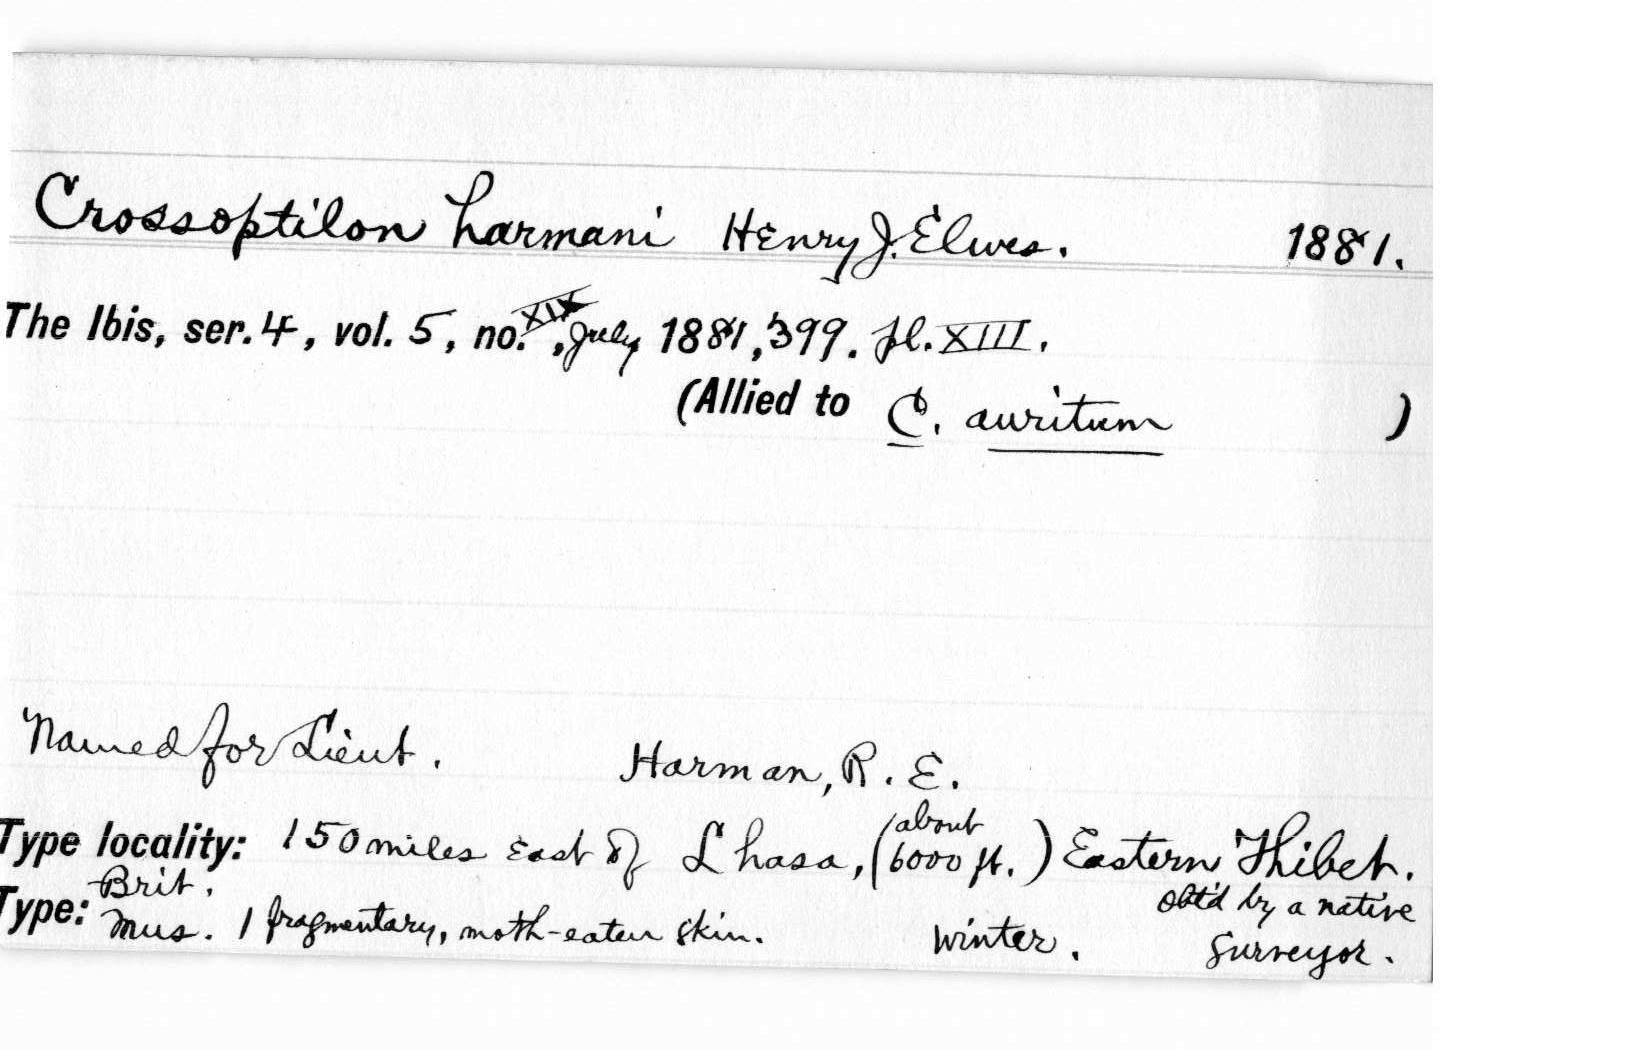 Crossoptilon harmani Henry J. Elwes. 1881.
The Ibis, ser. 4, vol. 5, no. XIX, July 1881, 399. pl. XIII.
(Allied to C. auritum )
Named for Lieut. Harman, R. E.
Type locality: 150 miles East of Lhasa, (about 6000 ft.) Eastern Thibet.
Type: Brit. Mus. 1 fragmentary, moth-eaten skin. Winter. obt'd by a native surveyor.